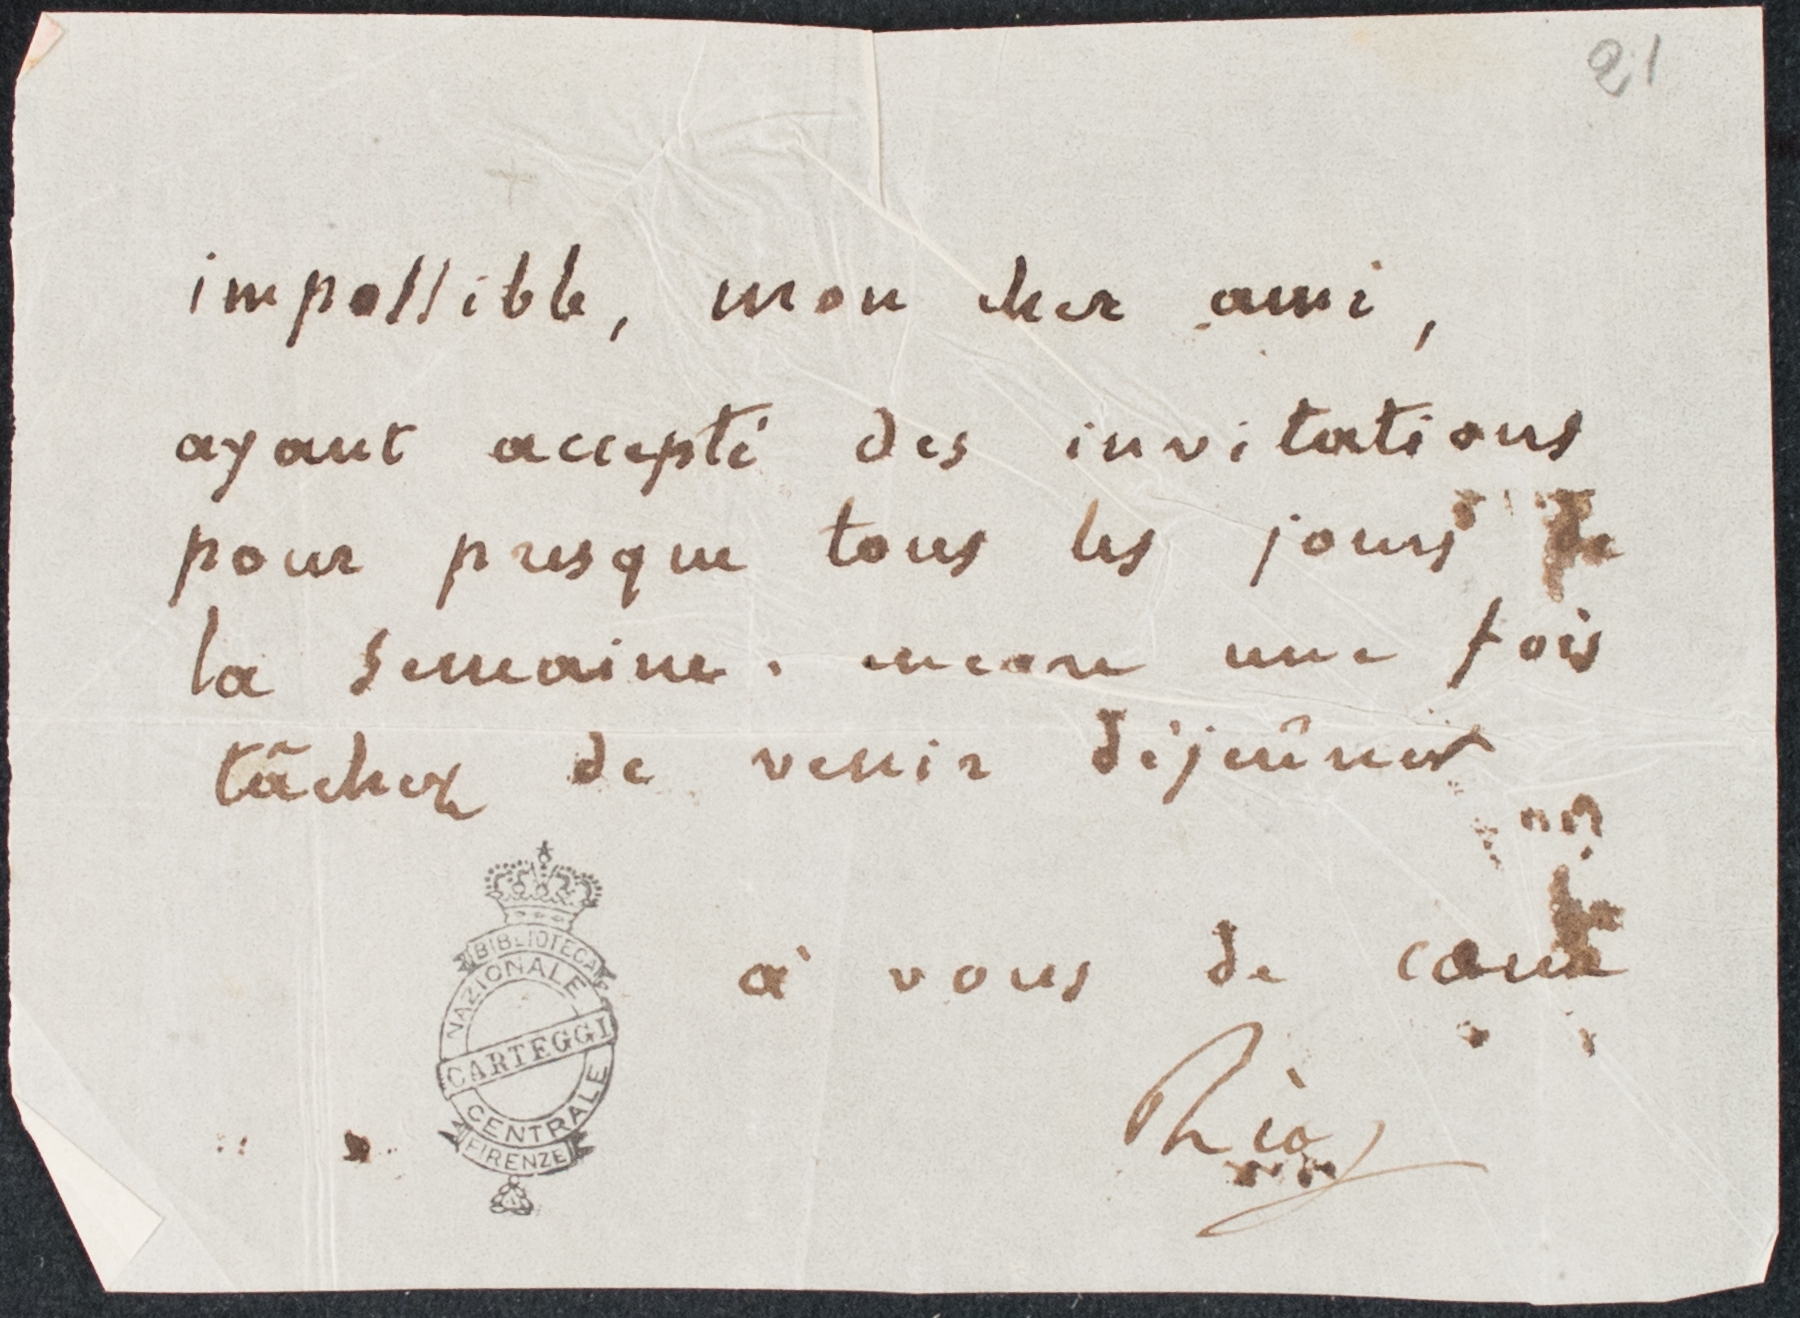 21
impossible, mon cher ami,
ayant accepté des invitations
pour presque tous les jours de
la semaine. encore une fois
tâchez de venir déjeûner
à vous de cœur
Rio
BIBLIOTECA
NAZIONALE
CARTEGGI
CENTRALE
FIRENZE